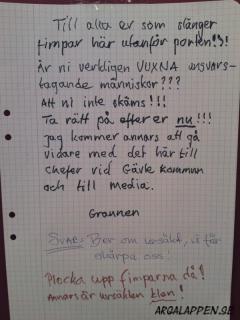 Till alla er som slänger
fimpar här utanför porten!!!
Är ni verkligen VUXNA ansvars-
tagande människor???
Att ni inte skäms!!!
Ta rätt på efter er nu!!!
Jag kommer annars att gå
vidare med det här till
chefer vid Gävle kommun
och till media.
Grannen
SVAR: Ber om ursäkt, vi får
skärpa oss!
Plocka upp fimparna då!
Annars är ursäkten klen!
ARGALAPPEN.SE